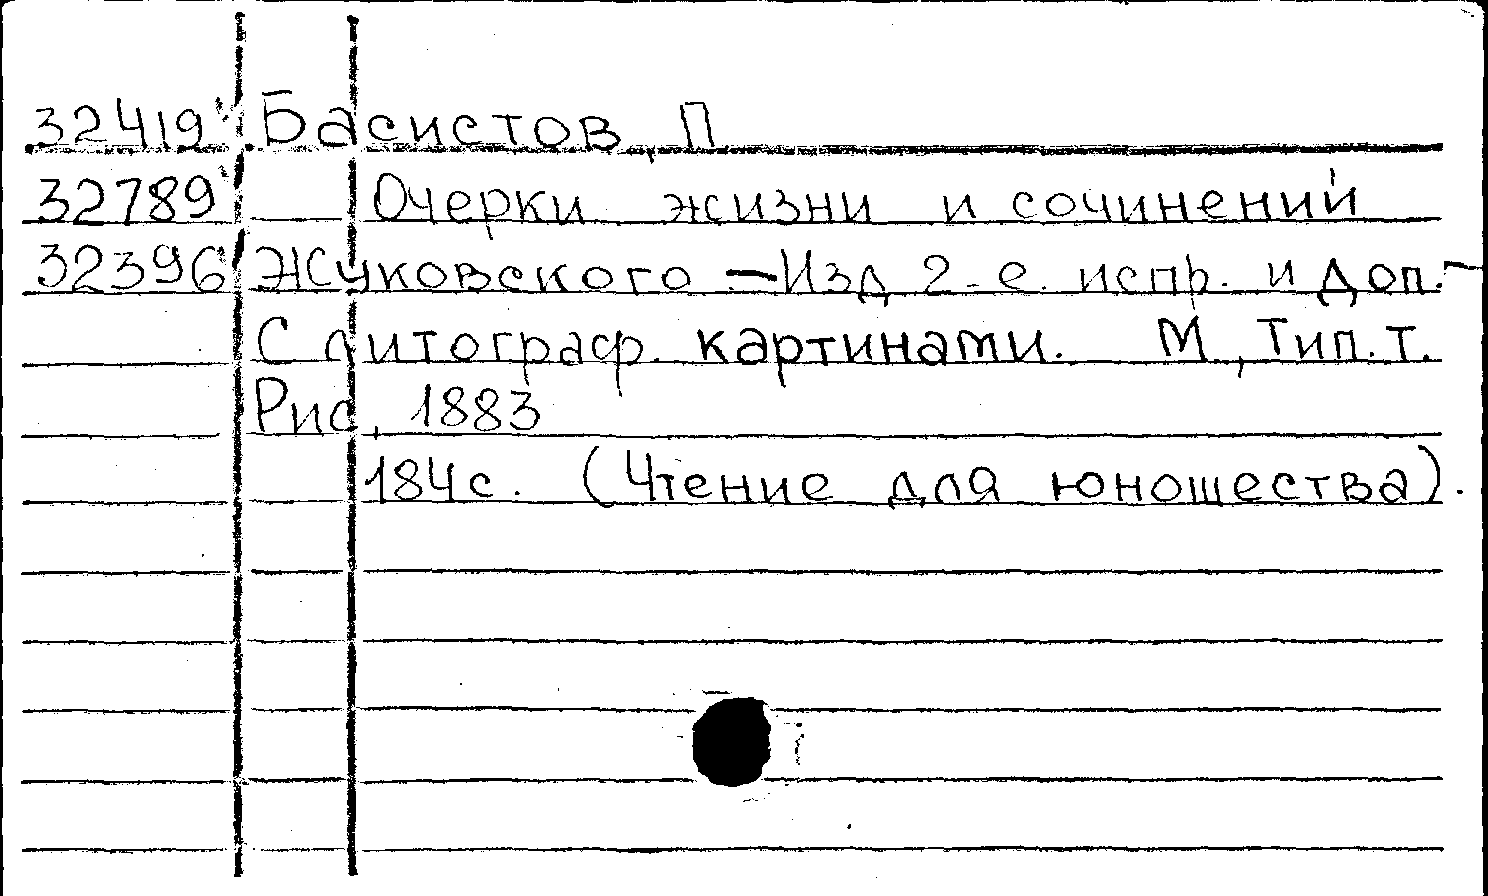 32419 Басистов, П
32789 Очерки жизни и сочинений
32396 Жуковского. — Изд 2-е. испр. и доп. —
С литограф. картинами. М, Тип. Т.
Рис, 1883
184 с. (Чтение для юношества).